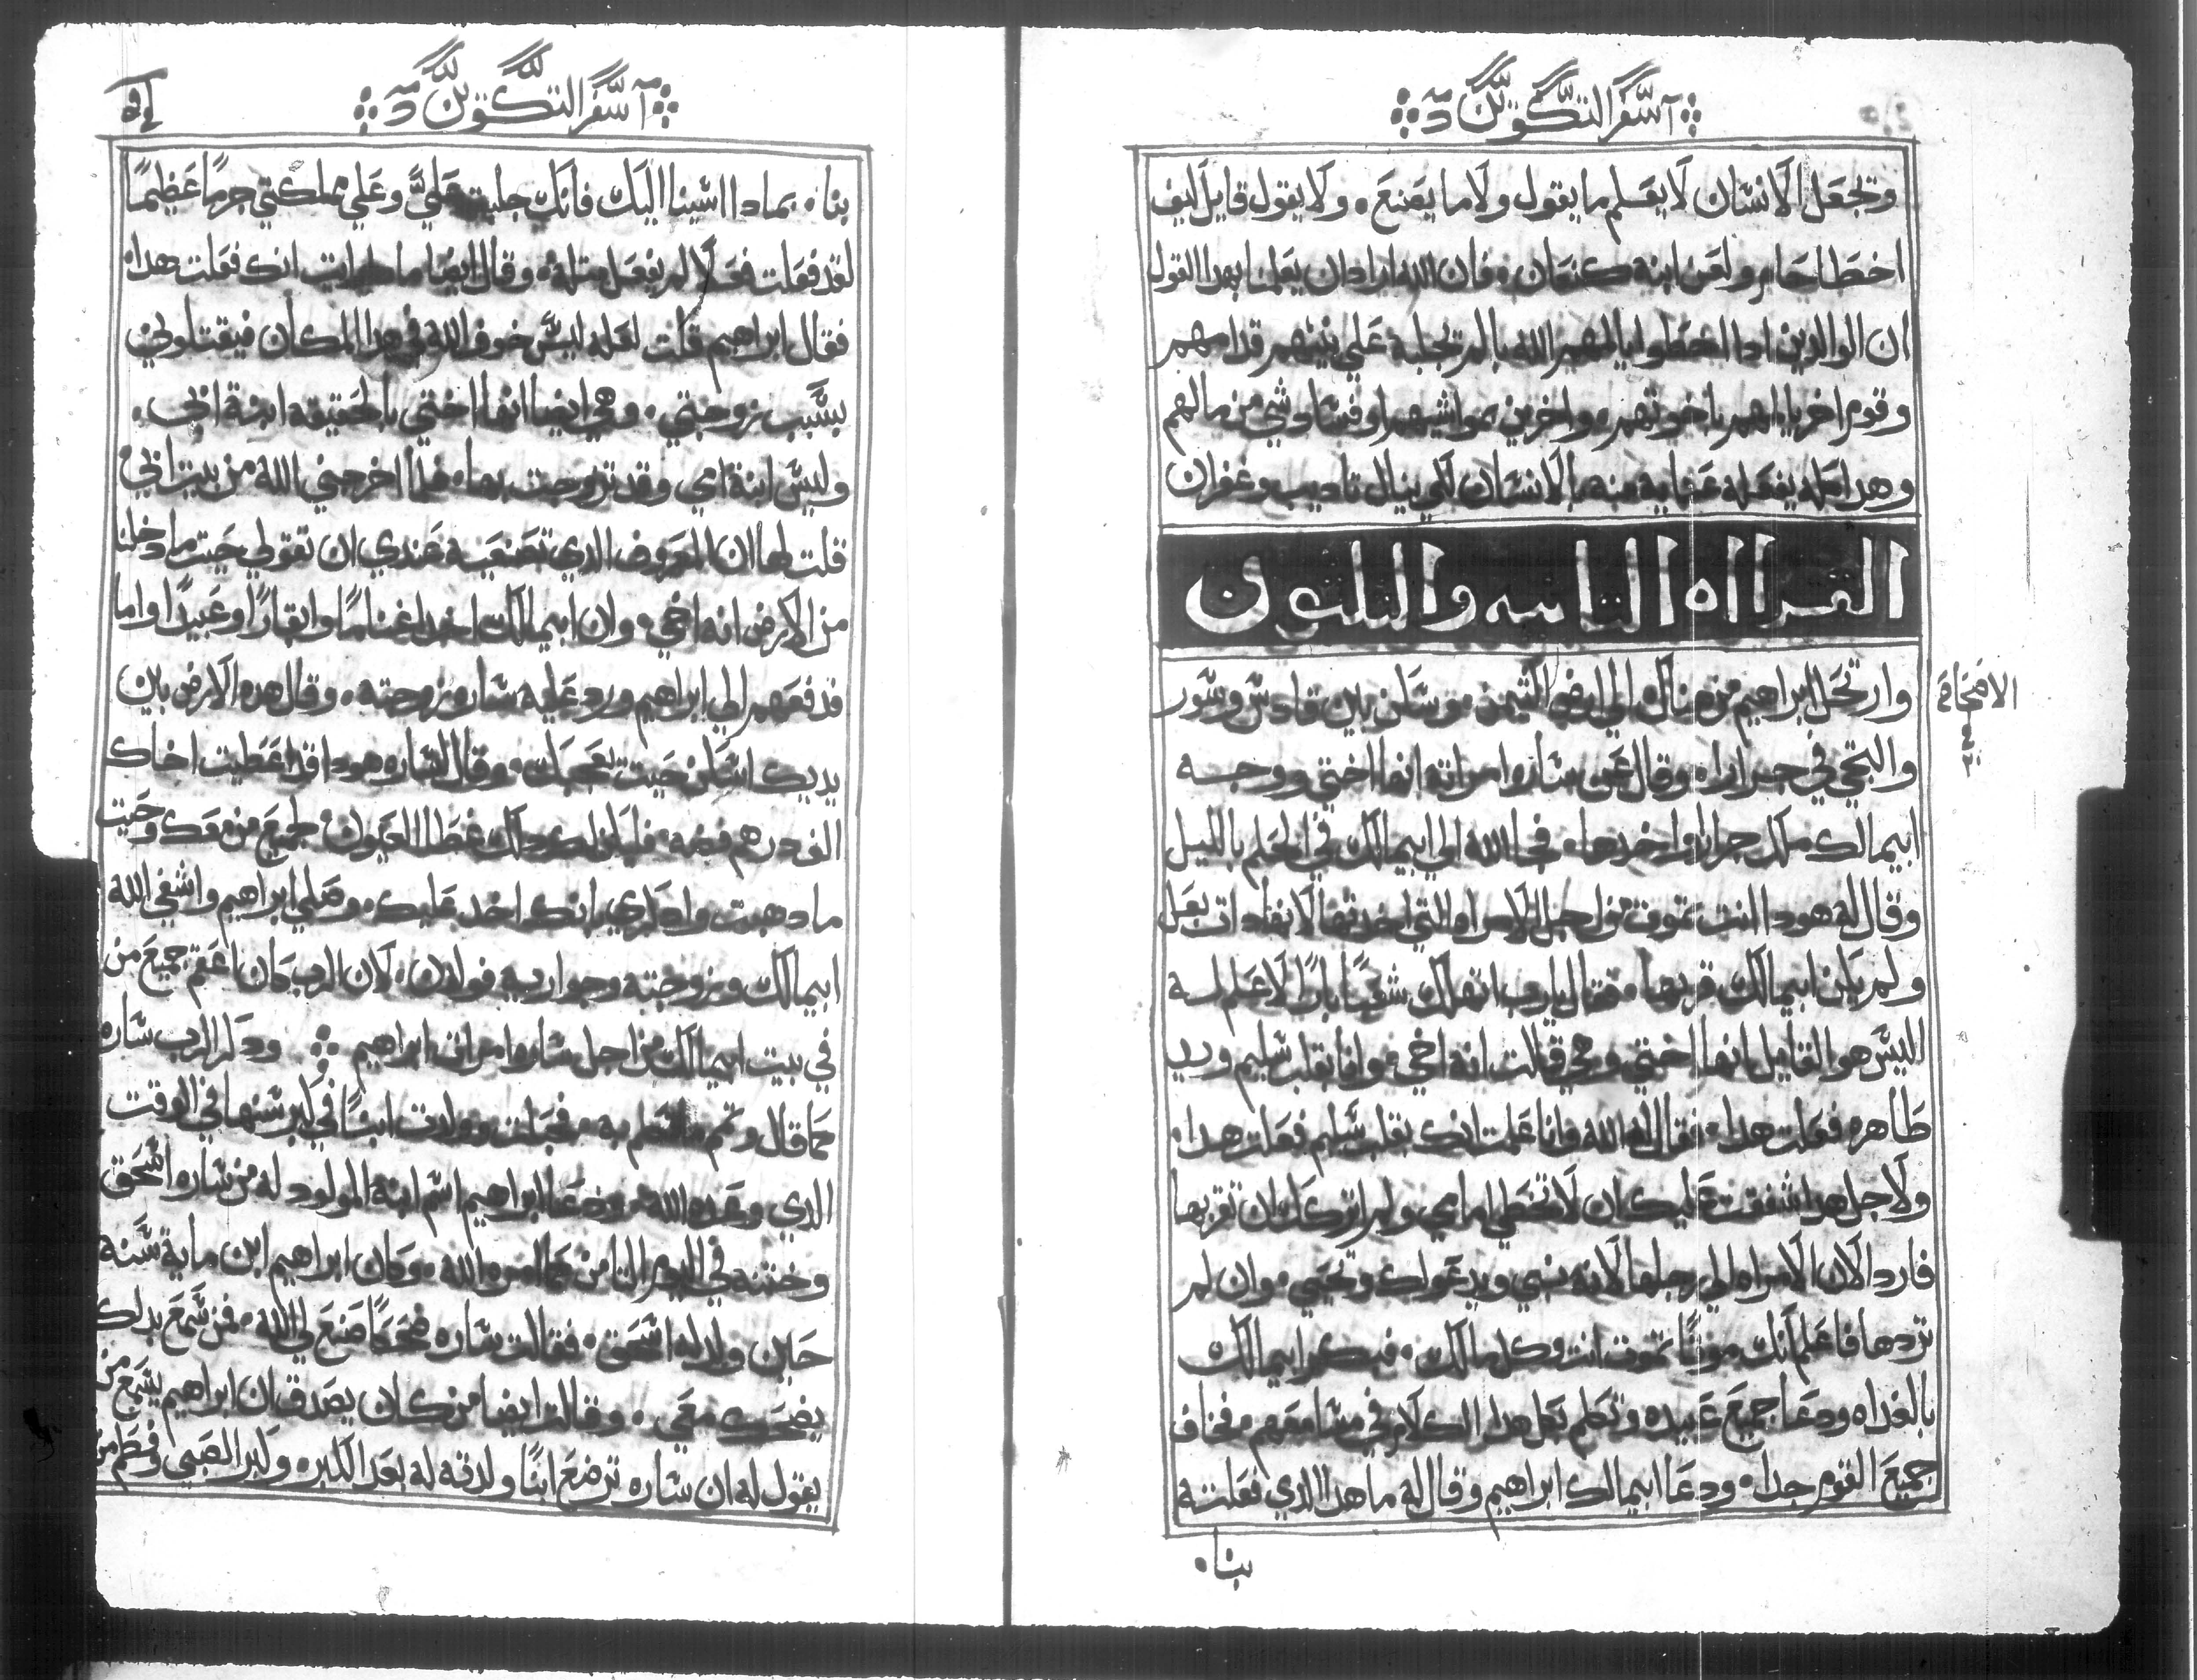 آ سفر التكوين د
وتجعل الانسان لا يعلم ما يقول ولا ما يصنع . ولا يقول قايل ليف
اخطا حام ولعن ابنه كنعان . فان الله اراد ان يعلمنا بهدا القول
ان الوالدين ادا اخطوا يالمهم الله بالم تجلبة علي بنيهم قدامهم
وقوم اخر يالهم باخوتهم . واخرين بمواشيهم او فساد شي من مالهم
وهدا كله يفعله عنايه منه بالانسان لكي ينال تاديب وغفران
القراه التامنه والتلتون
وارتحل ابراهيم من هناك الي ارض التيمن . وسكن بين قادس وسور
الاصحاح
٢٠
والتجي في جرارا . وقال عن ساره امراته انها اختي ووجه
ابيمالك ملك جرارا واخدها . فجا الله الي ابيمالك في الحلم بالليل
وقال له هودا انت تموت من اجل الامراه التي اخدتها لانها دات بعل
ولم يكن ابيمالك قربها . فقال يارب اتهلك شعبا بارا لا علم له
اليس هو القايل انها اختي وهي قالت انه اخي . وانا بقلب سليم ويد
طاهره فعلت هدا . فقال له الله وانا علمت انك بقلب سليم فعلت هدا .
ولاجل هدا شفقت عليك ان لا تخطي امامي ولم اتركك ان تقربها
فارد الان الامراه الي رجلها لانه نبي ويدعوا لك وتحيي . وان لم
تردها فاعلم انك موتا تموت انت وكل مالك . فبكر ابيمالك
بالغداه ودعا جميع عبيده وتكلم بكل هدا الكلام في مسامعهم . فخاف
جميع القوم جدا . ودعا ابيمالك ابراهيم وقال له ما هدا الدي فعلته
بنا .
آ سفر التكوين د
بنا . بمادا اسينا اليك فانك جلبت علي وعلي مملكتي جرما عظيما
لقد فعلت فعلا لم يفعل متله . وقال ايضا مادا رايت انك فعلت هدا .
فقال ابراهيم قلت لعله ليس خوف الله في هدا المكان فيقتلوني
بسبب زوجتي . وهي ايضا انها اختي بالحقيقه ابنة ابي .
وليس ابنة امي وقد تزوجت بها . فلما اخرجني الله من بيت ابي
قلت لها ان المعروف الدي تصنعيه عندي ان تقولي حيت ما دخلنا
من الارض انه اخي . وان ابيمالك اخد اغناما وابقارا وعبيدا واما
فدفعهم الي ابراهيم ورد عليه ساره زوجته . وقال هده الارض بين
يديك اسكن حيت يعجبك . وقال لساره هودا قد اعطيت اخاك
الف درهم فضه . فليكن لك دلك غطا العيون لجميع من معك وحيت
ما دهبت وادكري بانك اخد عليك . وصلي ابراهيم واشفي الله
ابيمالك وزوجته وجواريه فولدن . لان الرب كان اعقم جميع من
في بيت ابيمالك من اجل ساره امراة ابراهيم ودكر الرب ساره
كما قال وتم ما تكلم به . فحبلت وولدت ابنا في كبر سنها في الوقت
الدي وعده الله . ودعا ابراهيم اسم ابنه المولود له من ساره اسحق
وختنه في اليوم التامن كما امره الله . وكان ابراهيم ابن ماية سنة
حين ولد له اسحق . فقالت ساره ضحكا صنع لي الله . فمن سمع بدلك
يضحك معي . وقالت ايضا من كان يصدق ان ابراهيم يسمع من
يقول له ان ساره ترضع ابنا ولدته له بعد الكبره وكبر الصبي وفطم من